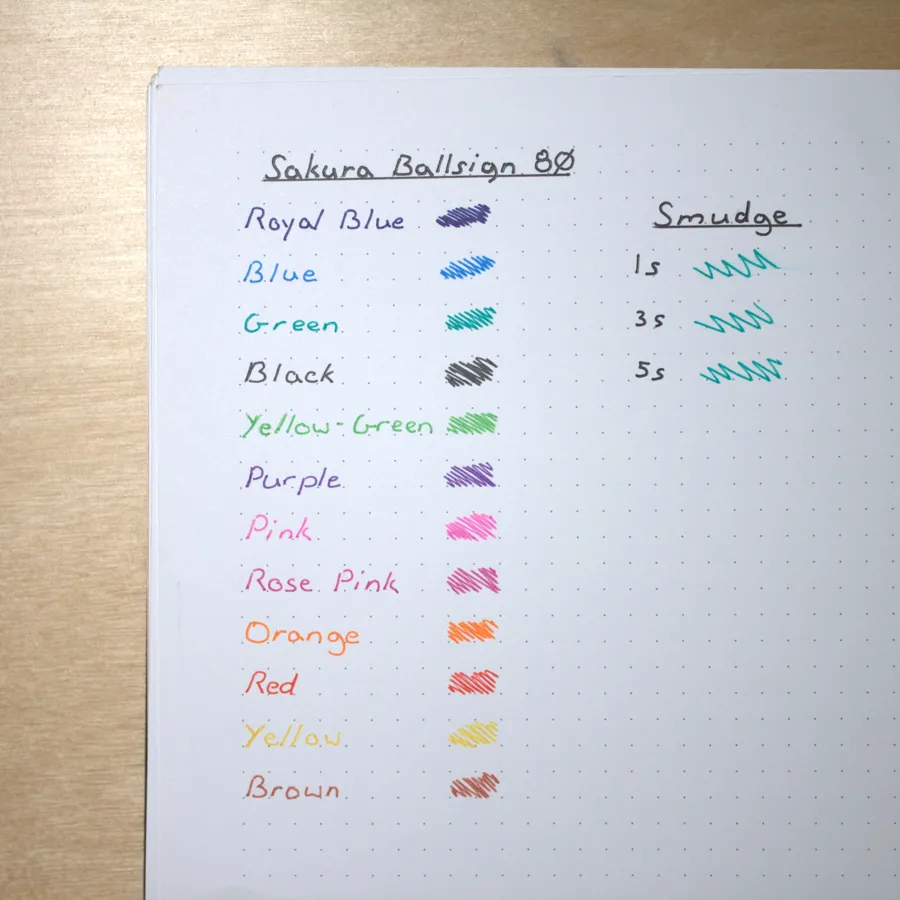 Sakura Ballsign 80
Royal Blue
Blue
Green
Black
Yellow-Green
Purple
Pink
Rose Pink
Orange
Red
Yellow
Brown
Smudge
1s
3s
5s